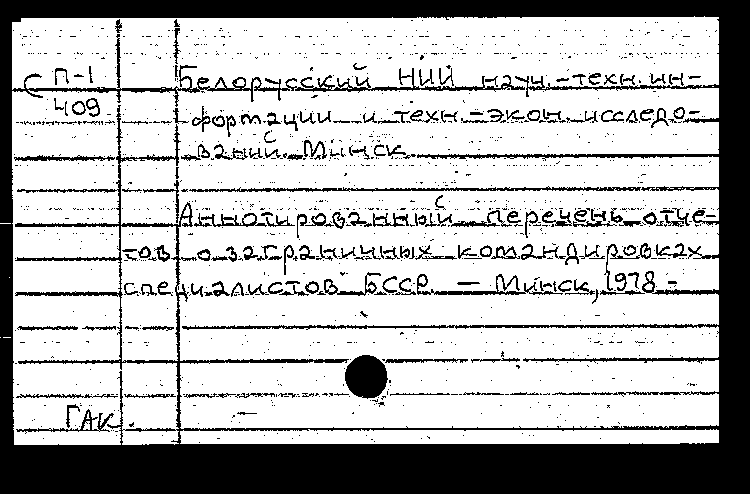 С П-1 Белорусский НИИ науч.-техн.ин-
409 формации и техн.-экон. исследо-
ваний. Минск
Аннотированный перечень отче-
тов о заграничных командировках
специалистов БССР. — Минск, 1978 -
ГАК.